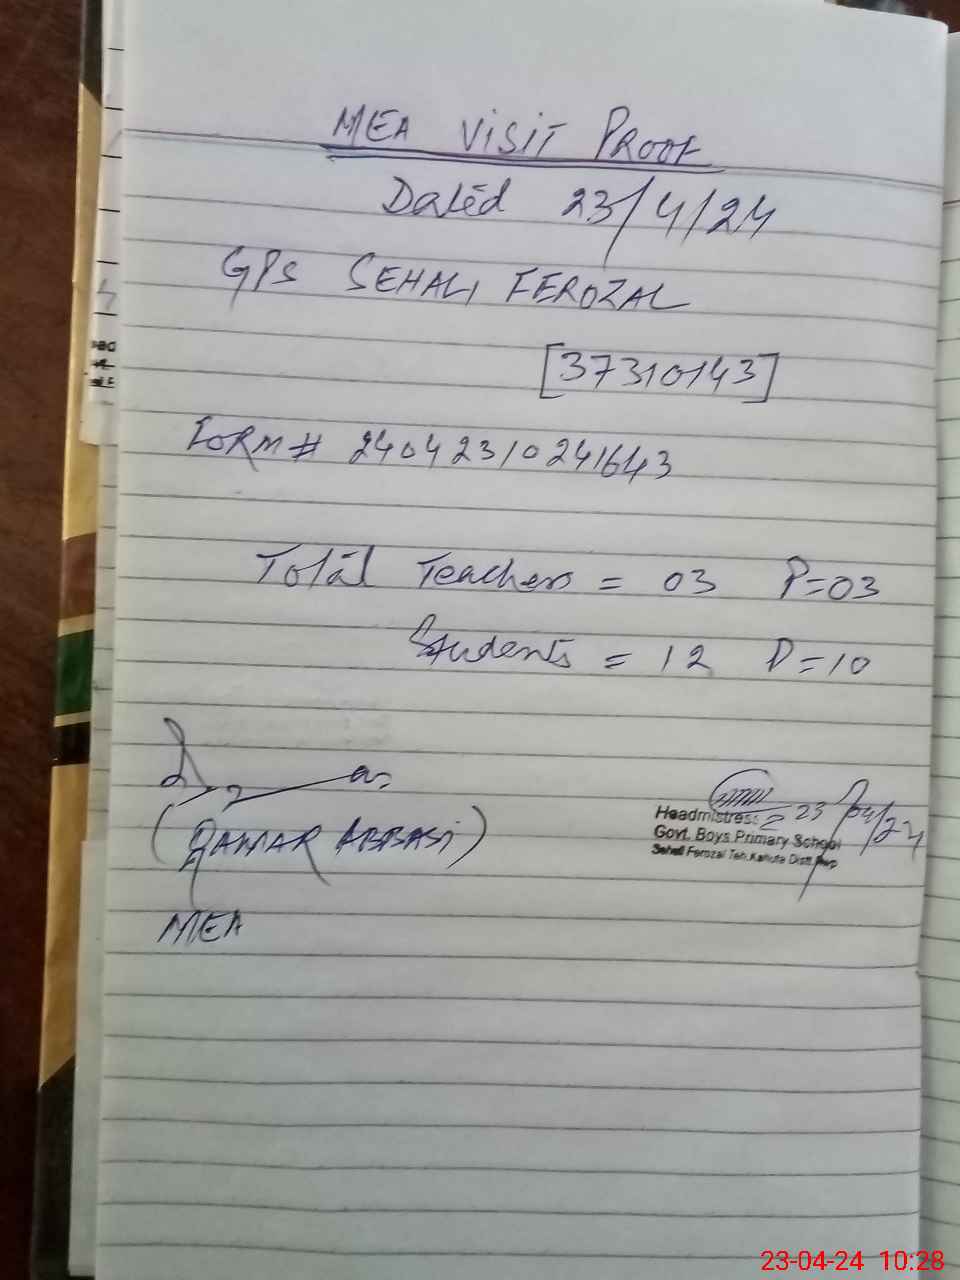 MEA VISIT PROOF
Dated 23/4/24
GPS SEHALI FEROZAL
[37310143]
FORM # 24042310241643
Total Teachers = 03 P=03
Students = 12 P=10
(QAMAR ABBASI)
MEA
23/04/24
Headmistress
Govt. Boys Primary School
Sehali Ferozal Teh. Kahuta Distt. Rwp
23-04-24 10:28